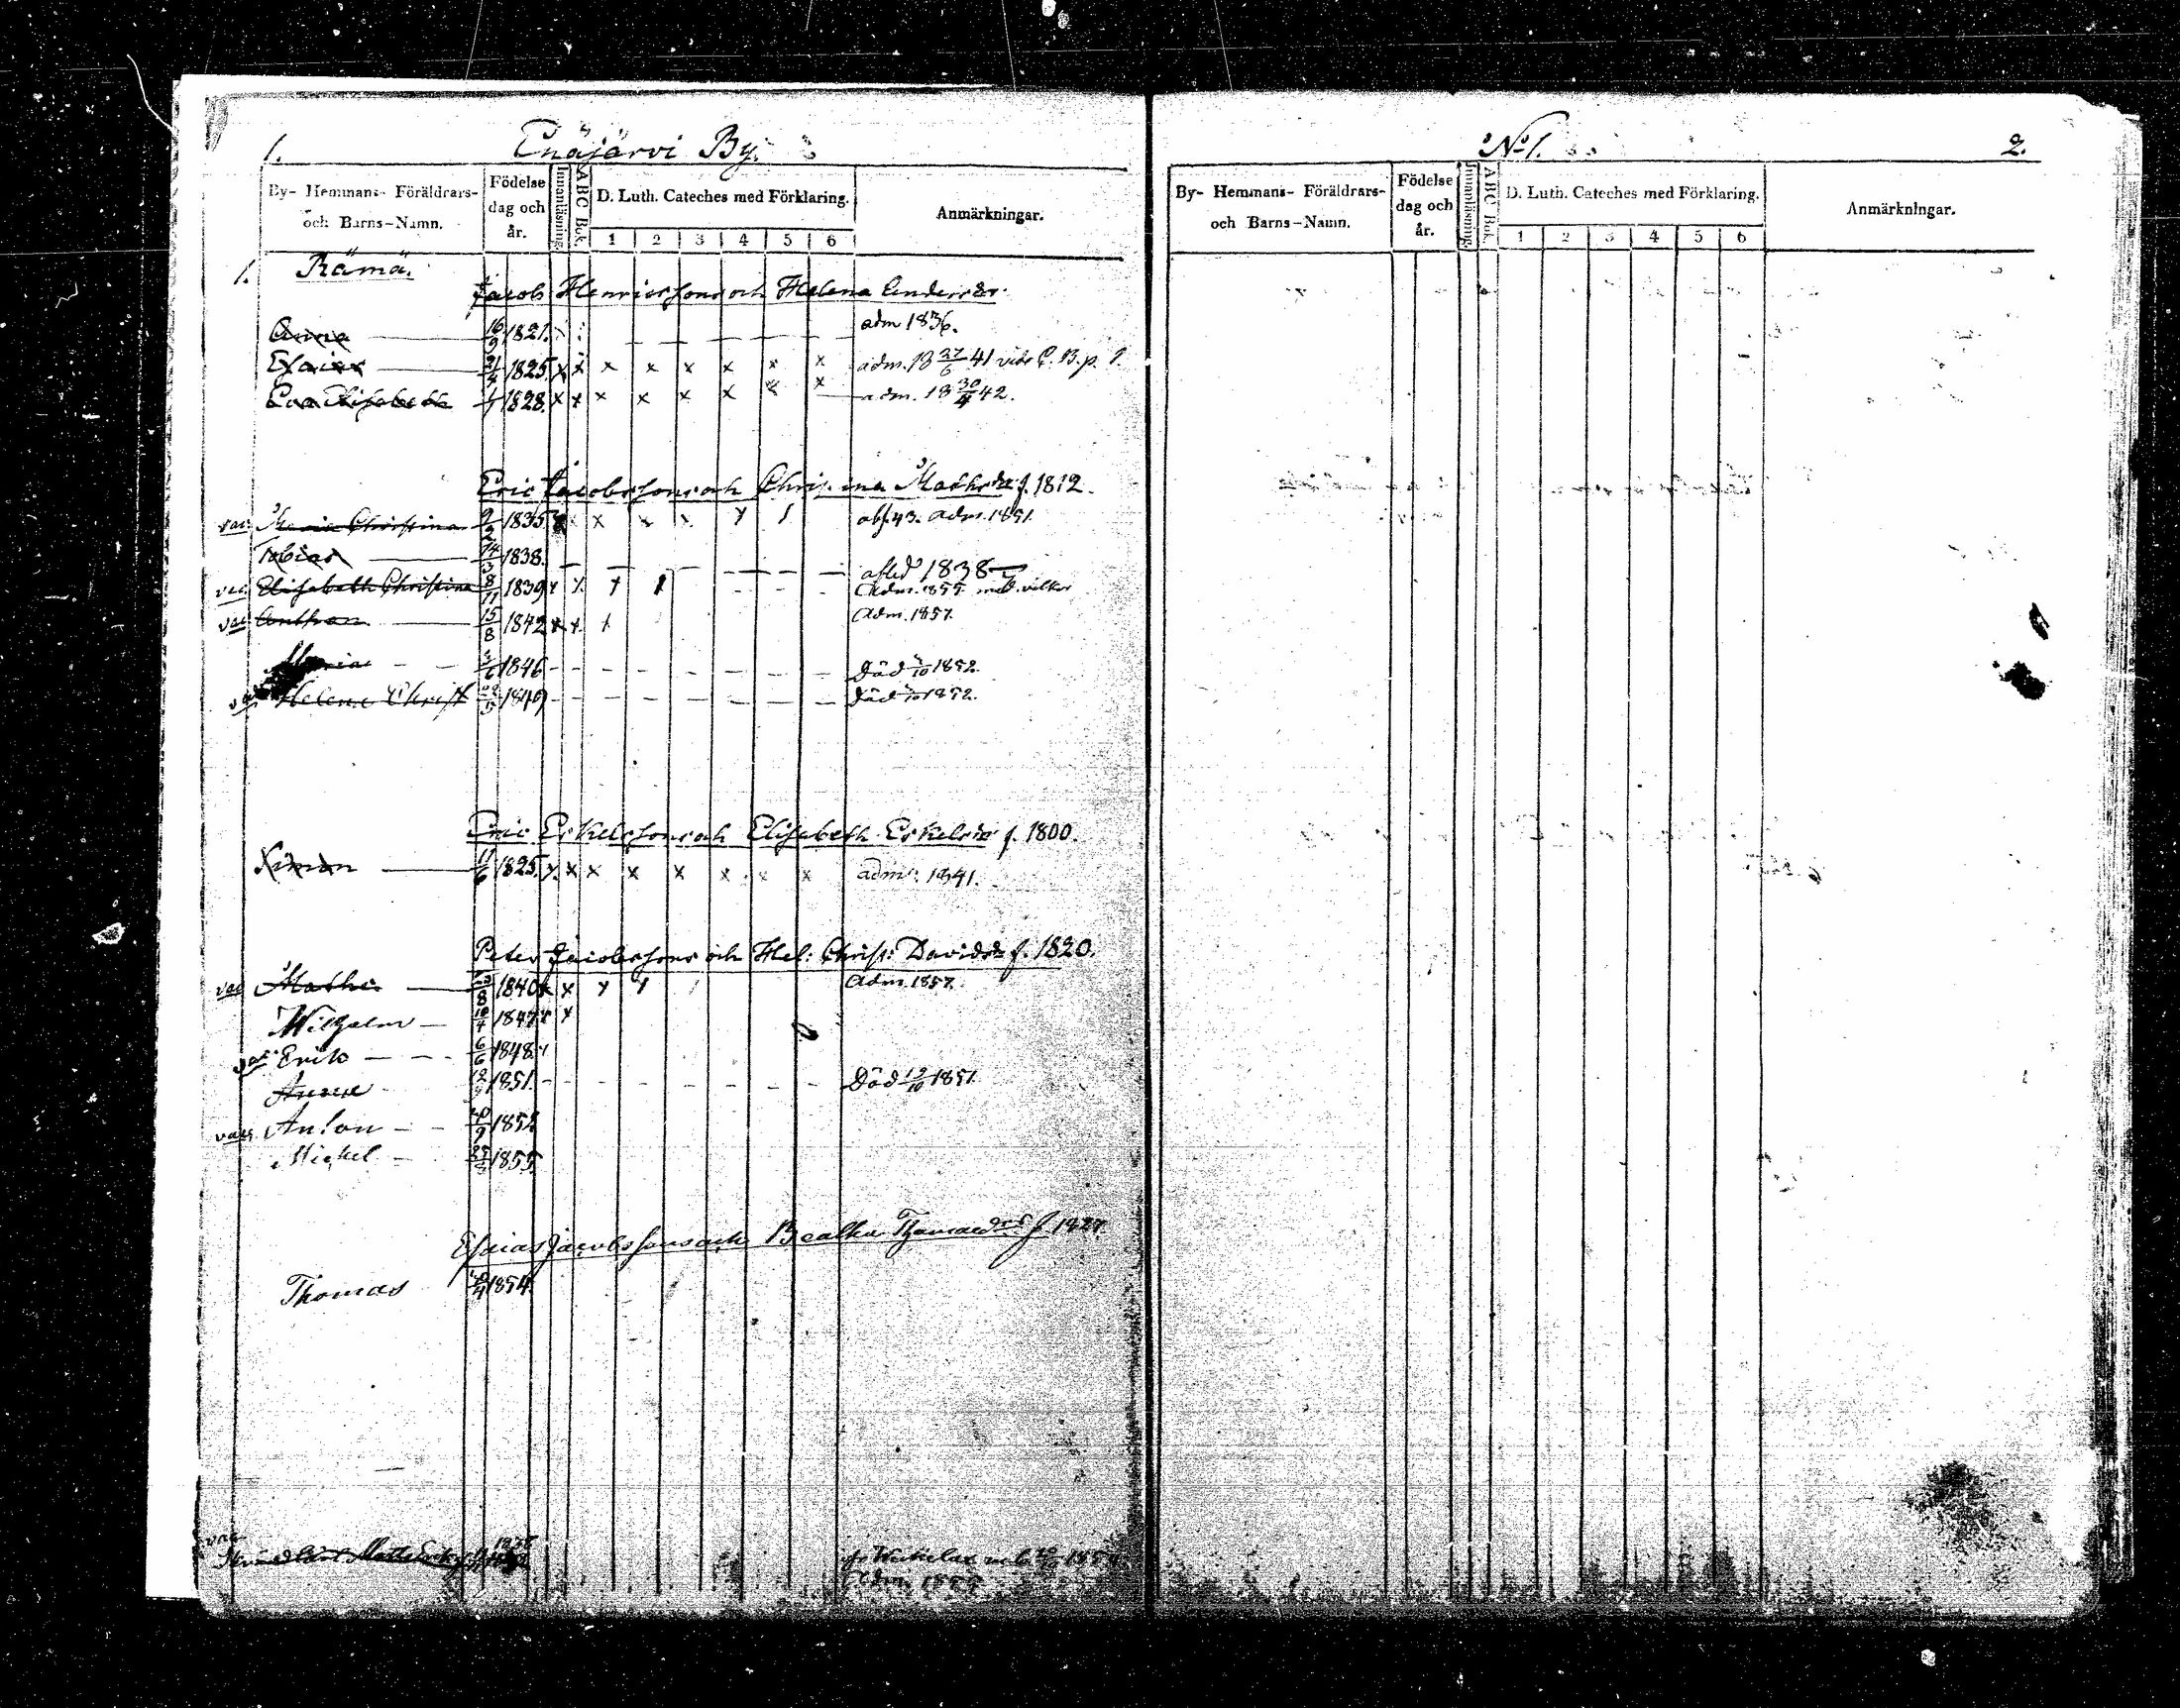 1. Enäjärvi By.
By- Hemmans- Föräldrars- och Barns-Namn.
Födelse dag och år.
Innanläsning.
ABC Bok.
D. Luth. Cateches med Förklaring.
1 2 3 4 5 6
Anmärkningar.
1. Rämä.
Jacob Henricssons och Helena Endersdr.
Anna 16/9 1821. adm 1836.
Esaias 21/4 1825. x x x x x x x x adm. 18 27/6 41 vide C. B. p. 1.
Eva Elisabeth 1828. x x x x x x x x adm. 18 30/4 42.
Eric Jacobssons och Christina Mathsdr f. 1812.
vac Maria Christina 1835 x x x x y abs. 43. adm. 1851.
Tobias 14/3 1838. afled 1838
vac Elisabeth Christina 8/11 1839 Adm. 1855. med. vilkor
vac Anthon 15/8 1842 x x Adm. 1857.
Maria 1846 Död 1852.
vac Helena Christ 1849 Död 1852.
Eric Eskelssons och Elisabeth Eskelsdr f. 1800.
Simon 11/6 1825. x x x x x x x x adm: 1841.
Peter Jacobssons och Hel: Christ: Davidsdr f. 1820.
vac Mathi 1840 x x y Adm. 1857.
Wilhelm 10/4 1847 x x
vac Erik 6/6 1848
Anna 1851. Död 12/10 1851.
vac Anton 20/9 1852
Mickel 1855.
Esaias Jacobssons och Beatha Thomaedr f. 1827.
Thomas 1854.
vac Matts 1838
fr Weckelax 1854
Adm. 1855
No 1. 2.
By- Hemmans- Föräldrars- och Barns-Namn.
Födelse dag och år.
Innanläsning.
ABC Bok.
D. Luth. Cateches med Förklaring.
1 2 3 4 5 6
Anmärkningar.